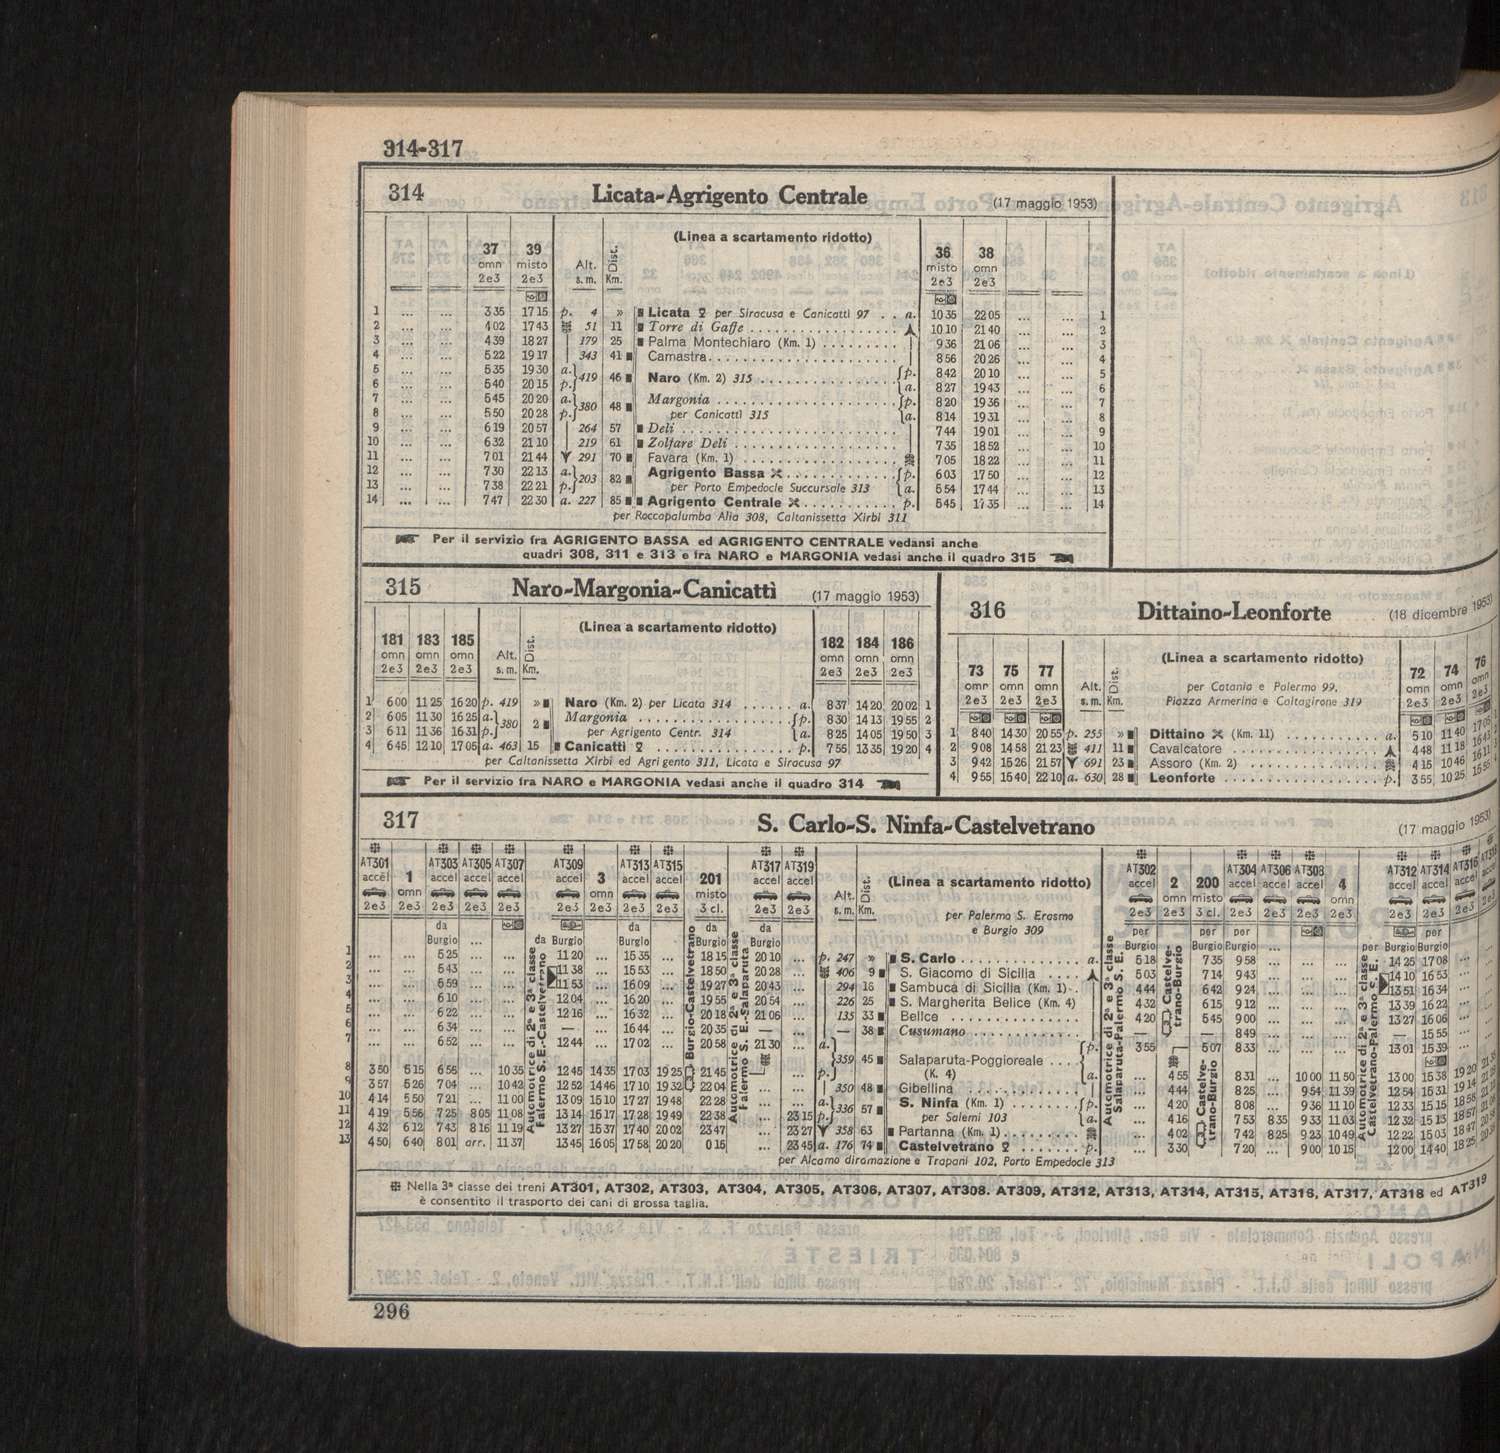 314-317
314 Licata-Agrigento Centrale (17 maggio 1953)
(Linea a scartamento ridotto)
37 39 Alt. Dist. 36 38
omn misto s. m. Km. misto omn
2e3 2e3 2e3 2e3
1 ... ... 3 35 17 15 p. 4 » Licata per Siracusa e Canicattì 97 . . a. 10 35 22 05 ... ... 1
2 ... ... 4 02 17 43 51 11 Torre di Gaffe 10 10 21 40 ... ... 2
3 ... ... 4 39 18 27 179 25 Palma Montechiaro (Km. 1) 9 36 21 06 ... ... 3
4 ... ... 5 22 19 17 343 41 Camastra 8 56 20 26 ... ... 4
5 ... ... 5 35 19 30 a. 419 46 Naro (Km. 2) 315 p. 8 42 20 10 ... ... 5
6 ... ... 5 40 20 15 p. a. 8 27 19 43 ... ... 6
7 ... ... 5 45 20 20 a. 380 48 Margonia p. 8 20 19 36 ... ... 7
8 ... ... 5 50 20 28 p. per Canicattì 315 a. 8 14 19 31 ... ... 8
9 ... ... 6 19 20 57 264 57 Deli 7 44 19 01 ... ... 9
10 ... ... 6 32 21 10 219 61 Zolfare Deli 7 35 18 52 ... ... 10
11 ... ... 7 01 21 44 291 70 Favara (Km. 1) 7 05 18 22 ... ... 11
12 ... ... 7 30 22 13 a. 203 82 Agrigento Bassa p. 6 03 17 50 ... ... 12
13 ... ... 7 38 22 21 p. per Porto Empedocle Succursale 313 a. 5 54 17 44 ... ... 13
14 ... ... 7 47 22 30 a. 227 85 Agrigento Centrale p. 5 45 17 35 ... ... 14
per Roccapalumba Alia 308, Caltanissetta Xirbi 311
Per il servizio fra AGRIGENTO BASSA ed AGRIGENTO CENTRALE vedansi anche
quadri 308, 311 e 313 e fra NARO e MARGONIA vedasi anche il quadro 315
315 Naro-Margonia-Canicattì (17 maggio 1953)
(Linea a scartamento ridotto)
181 183 185 Alt. Dist. 182 184 186
omn omn omn s. m. Km. omn omn omn
2e3 2e3 2e3 2e3 2e3 2e3
1 6 00 11 25 16 20 p. 419 » Naro (Km. 2) per Licata 314 a. 8 37 14 20 20 02 1
2 6 05 11 30 16 25 a. 380 2 Margonia p. 8 30 14 13 19 55 2
3 6 11 11 36 16 31 p. per Agrigento Centr. 314 a. 8 25 14 05 19 50 3
4 6 45 12 10 17 05 a. 463 15 Canicattì p. 7 55 13 35 19 20 4
per Caltanissetta Xirbi ed Agrigento 311, Licata e Siracusa 97
Per il servizio fra NARO e MARGONIA vedasi anche il quadro 314
316 Dittaino-Leonforte (18 dicembre 1953)
(Linea a scartamento ridotto)
per Catania e Palermo 99,
Piazza Armerina e Caltagirone 319
73 75 77 Alt. Dist. 72 74 76
omn omn omn s. m. Km. omn omn omn
2e3 2e3 2e3 2e3 2e3 2e3
1 8 40 14 30 20 55 p. 255 » Dittaino (Km. 11) a. 5 10 11 40 17 05
2 9 08 14 58 21 23 411 11 Cavalcatore 4 48 11 18 16 43
3 9 42 15 26 21 57 691 23 Assoro (Km. 2) 4 15 10 46 16 11
4 9 55 15 40 22 10 a. 630 28 Leonforte p. 3 55 10 25 15 55
317 S. Carlo-S. Ninfa-Castelvetrano (17 maggio 1953)
(Linea a scartamento ridotto)
per Palermo S. Erasmo
e Burgio 309
AT301 1 AT303 AT305 AT307 AT309 3 AT313 AT315 201 AT317 AT319 Alt. Dist. AT302 2 200 AT304 AT306 AT308 4 AT312 AT314 AT316
accel omn accel accel accel accel omn accel accel misto accel accel s. m. Km. accel omn misto accel accel accel omn accel accel accel
2e3 2e3 2e3 2e3 2e3 2e3 2e3 2e3 2e3 3 cl. 2e3 2e3 2e3 2e3 3 cl. 2e3 2e3 2e3 2e3 2e3 2e3 2e3
da Burgio da Burgio da Burgio da Burgio da Burgio per Burgio per Burgio per Burgio per Burgio per Burgio
Automotrice di 2ª e 3ª classe Palermo S. E.-Castelvetrano
Burgio-Castelvetrano
Automotrice di 2ª e 3ª classe Palermo S. E.-Salaparuta
Automotrice di 2ª e 3ª classe Salaparuta-Palermo S. E.
Castelvetrano-Burgio
Castelvetrano-Burgio
Automotrice di 2ª e 3ª classe Castelvetrano-Palermo S. E.
1 ... ... 5 25 ... ... 11 20 ... 15 35 ... 18 15 20 10 ... p. 247 » S. Carlo a. 5 18 7 35 9 58 ... ... ... 14 25 17 08
2 ... ... 5 43 ... ... 11 38 ... 15 53 ... 18 50 20 28 ... 406 9 S. Giacomo di Sicilia 5 03 7 14 9 43 ... ... ... 14 10 16 53
3 ... ... 5 59 ... ... 11 53 ... 16 09 ... 19 27 20 43 ... 294 16 Sambuca di Sicilia (Km. 1) 4 44 6 42 9 24 ... ... ... 13 51 16 34
4 ... ... 6 10 ... ... 12 04 ... 16 20 ... 19 55 20 54 ... 226 25 S. Margherita Belice (Km. 4) 4 32 6 15 9 12 ... ... ... 13 39 16 22
5 ... ... 6 22 ... ... 12 16 ... 16 32 ... 20 18 21 06 ... 135 33 Belice 4 20 5 45 9 00 ... ... ... 13 27 16 06
6 ... ... 6 34 ... ... — ... 16 44 ... 20 35 — ... — 38 Cusumano — — 8 49 ... ... ... — 15 55
7 ... ... 6 52 ... ... 12 44 ... 17 02 ... 20 58 21 30 ... a. 359 45 Salaparuta-Poggioreale p. 3 55 5 07 8 33 ... ... ... 13 01 15 39
8 3 50 5 15 6 56 ... 10 35 12 45 14 35 17 03 19 25 21 45 ... ... p. (K. 4) a. ... 4 55 8 31 ... 10 00 11 50 13 00 15 38 19 20
9 3 57 5 26 7 04 ... 10 42 12 52 14 46 17 10 19 32 22 04 ... ... 350 48 Gibellina ... 4 44 8 25 ... 9 54 11 39 12 54 15 31 19 14
10 4 14 5 50 7 21 ... 11 00 13 09 15 10 17 27 19 48 22 28 ... ... a. 336 57 S. Ninfa (Km. 1) p. ... 4 20 8 08 ... 9 36 11 10 12 33 15 15 18 58
11 4 19 5 56 7 25 8 05 11 08 13 14 15 17 17 28 19 49 22 38 ... 23 15 p. per Salemi 103 a. ... 4 16 7 53 8 35 9 33 11 03 12 32 15 13 18 57
12 4 32 6 12 7 43 8 16 11 19 13 27 15 37 17 40 20 02 23 47 ... 23 27 358 63 Partanna (Km. 1) ... 4 02 7 42 8 25 9 23 10 49 12 22 15 03 18 47
13 4 50 6 40 8 01 arr. 11 37 13 45 16 05 17 58 20 20 0 15 ... 23 45 a. 176 74 Castelvetrano p. ... 3 30 7 20 ... 9 00 10 15 12 00 14 40 18 25
per Alcamo diramazione e Trapani 102, Porto Empedocle 313
Nella 3ª classe dei treni AT301, AT302, AT303, AT304, AT305, AT306, AT307, AT308. AT309, AT312, AT313, AT314, AT315, AT316, AT317, AT318 ed AT319
è consentito il trasporto dei cani di grossa taglia.
296